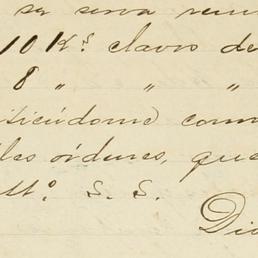 se serva remi
10 Ks. clavos de
8 " " "
iticiéndome comu
les órdenes, que
Atto. S. S.
Die